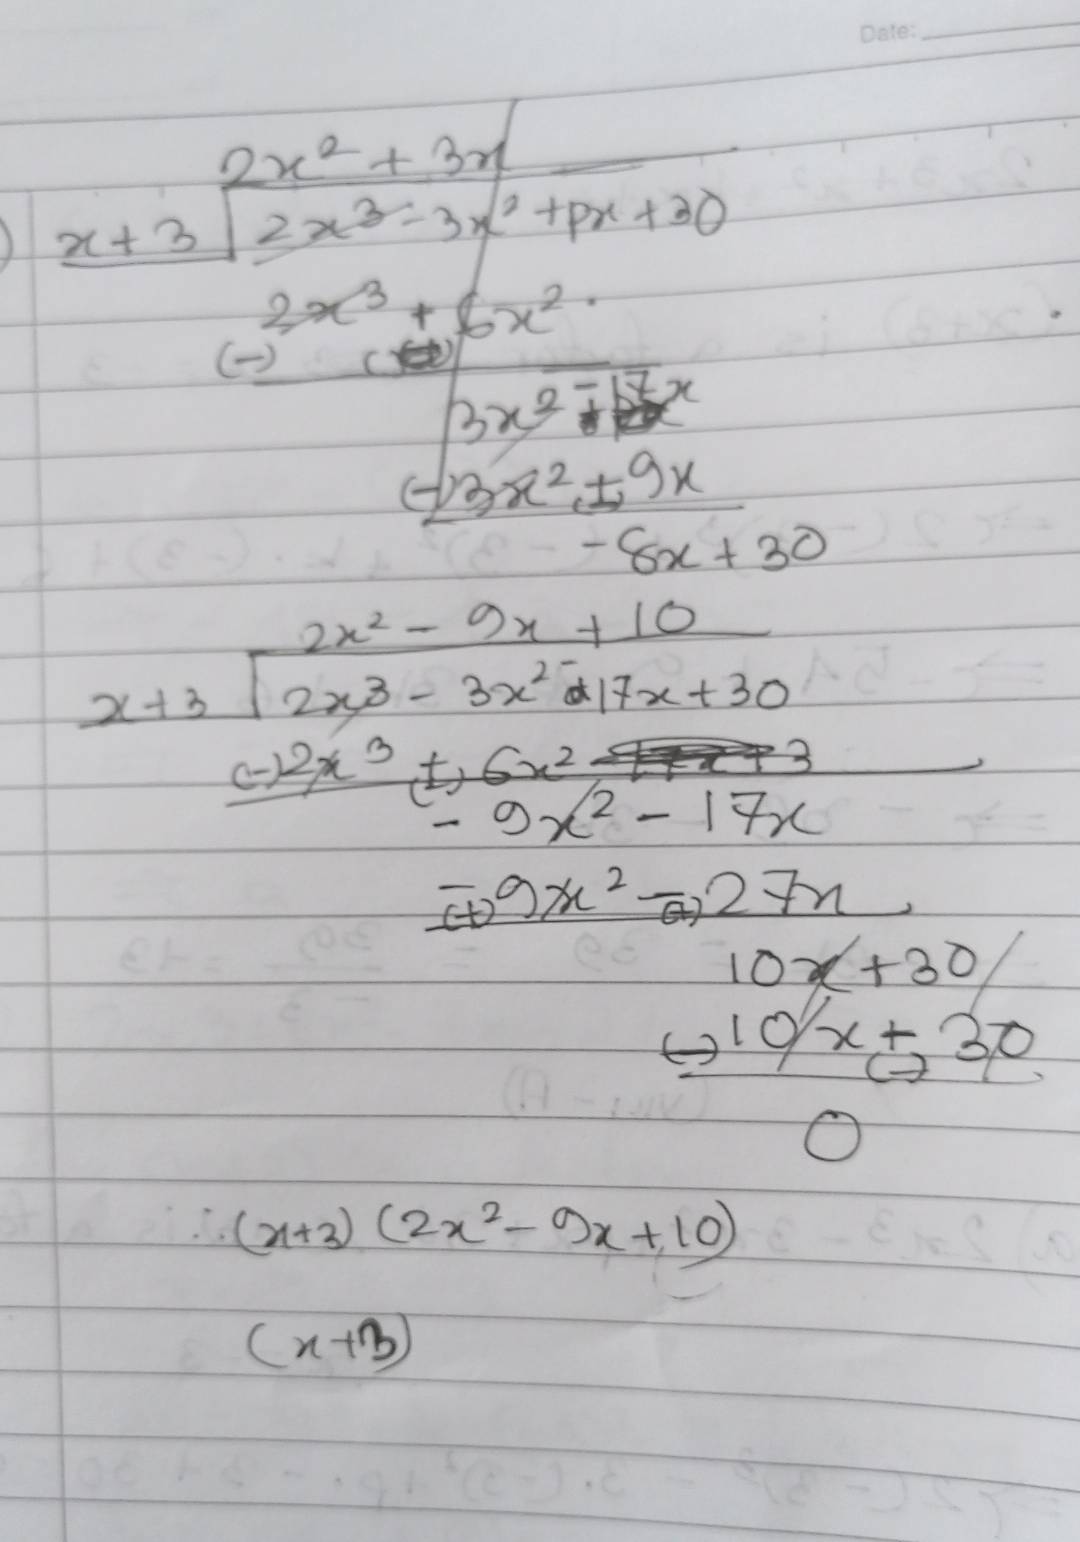 Date:
2x² + 3x
x + 3 2x³ - 3x² + px + 30
2x³ + 6x²
(-)
3x² - 17x
(-) 3x² + 9x
- 8x + 30
2x² - 9x + 10
x + 3 2x³ - 3x² - 17x + 30
(-) 2x³ + 6x²
(-)
- 9x² - 17x
- 9x² - 27x
(+) (+)
10x + 30
(-) 10x + 30
(-)
0
∴ (x+3) (2x² - 9x + 10)
(x+3)